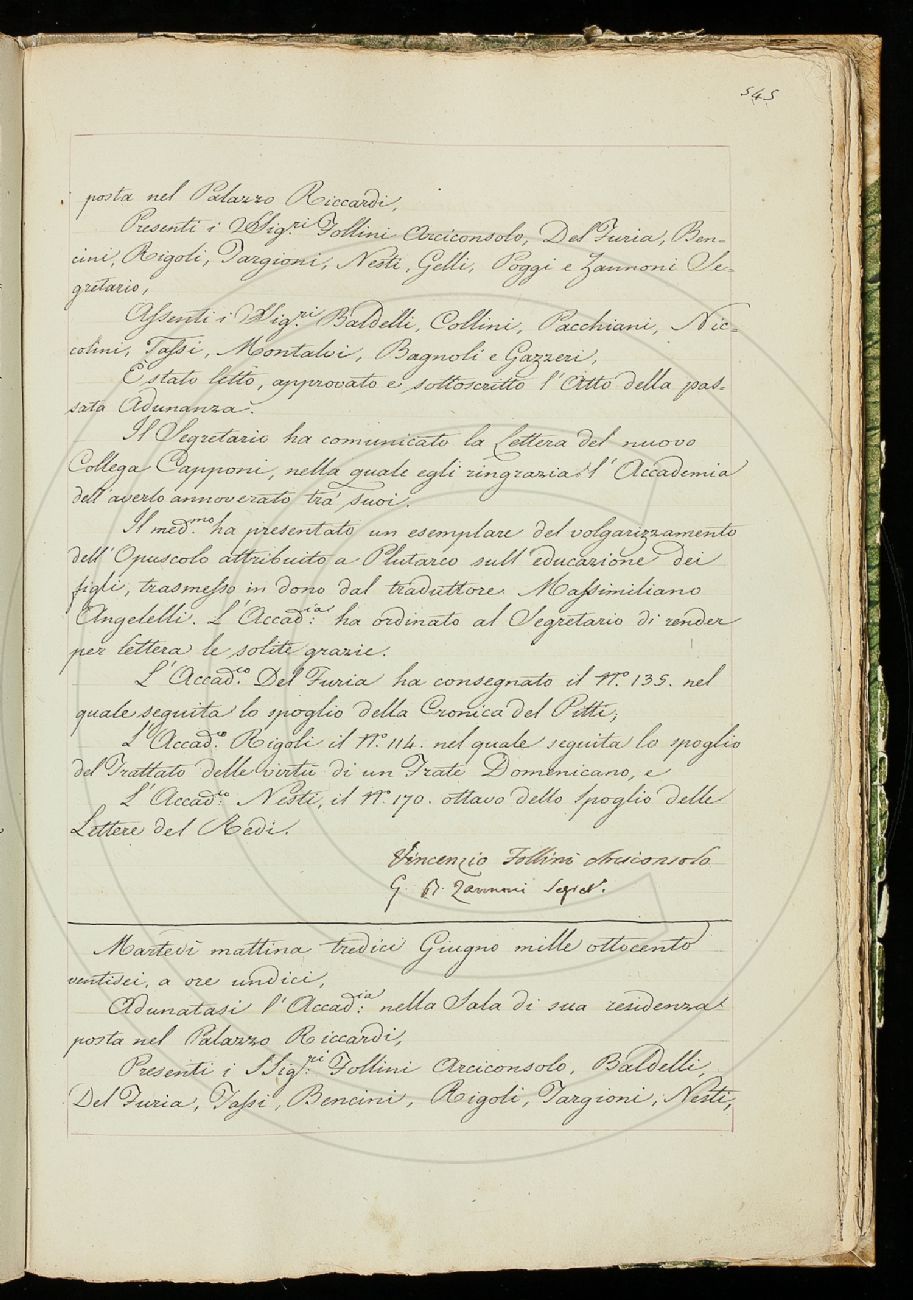 545
posta nel Palazzo Riccardi,
Presenti i SSig.ri Follini Arciconsolo, Del Furia, Ben-
cini, Rigoli, Targioni, Nesti, Gelli, Poggi e Zannoni Se-
gretario,
Assenti i SSig.ri Baldelli, Collini, Pacchiani, Nic-
colini, Tassi, Montalvi, Bagnoli e Gazzeri,
È stato letto, approvato e sottoscritto l'Atto della pas-
sata Adunanza.
Il Segretario ha comunicato la Lettera del nuovo
Collega Capponi, nella quale egli ringrazia l'Accademia
dell'averlo annoverato tra' suoi.
Il med.mo ha presentato un esemplare del volgarizzamento
dell'Opuscolo attribuito a Plutarco sull'educazione dei
figli, trasmesso in dono dal traduttore Massimiliano
Angelelli. L'Accad.ia ha ordinato al Segretario di render
per lettera le solite grazie.
L'Accad.co Del Furia ha consegnato il N.o 135. nel
quale seguita lo spoglio della Cronica del Pitti,
L'Accad.co Rigoli il N.o 114. nel quale seguita lo spoglio
del Trattato delle virtù di un Frate Domenicano, e
L'Accad.co Nesti, il N.o 170. ottavo dello Spoglio delle
Lettere del Redi.
Vincenzio Follini Arciconsolo
G. B. Zannoni Segret.
Martedì mattina tredici Giugno mille ottocento
ventisei, a ore undici,
Adunatasi l'Accad.ia nella Sala di sua residenza
posta nel Palazzo Riccardi,
Presenti i SSig.ri Follini Arciconsolo, Baldelli,
Del Furia, Tassi, Bencini, Rigoli, Targioni, Nesti,